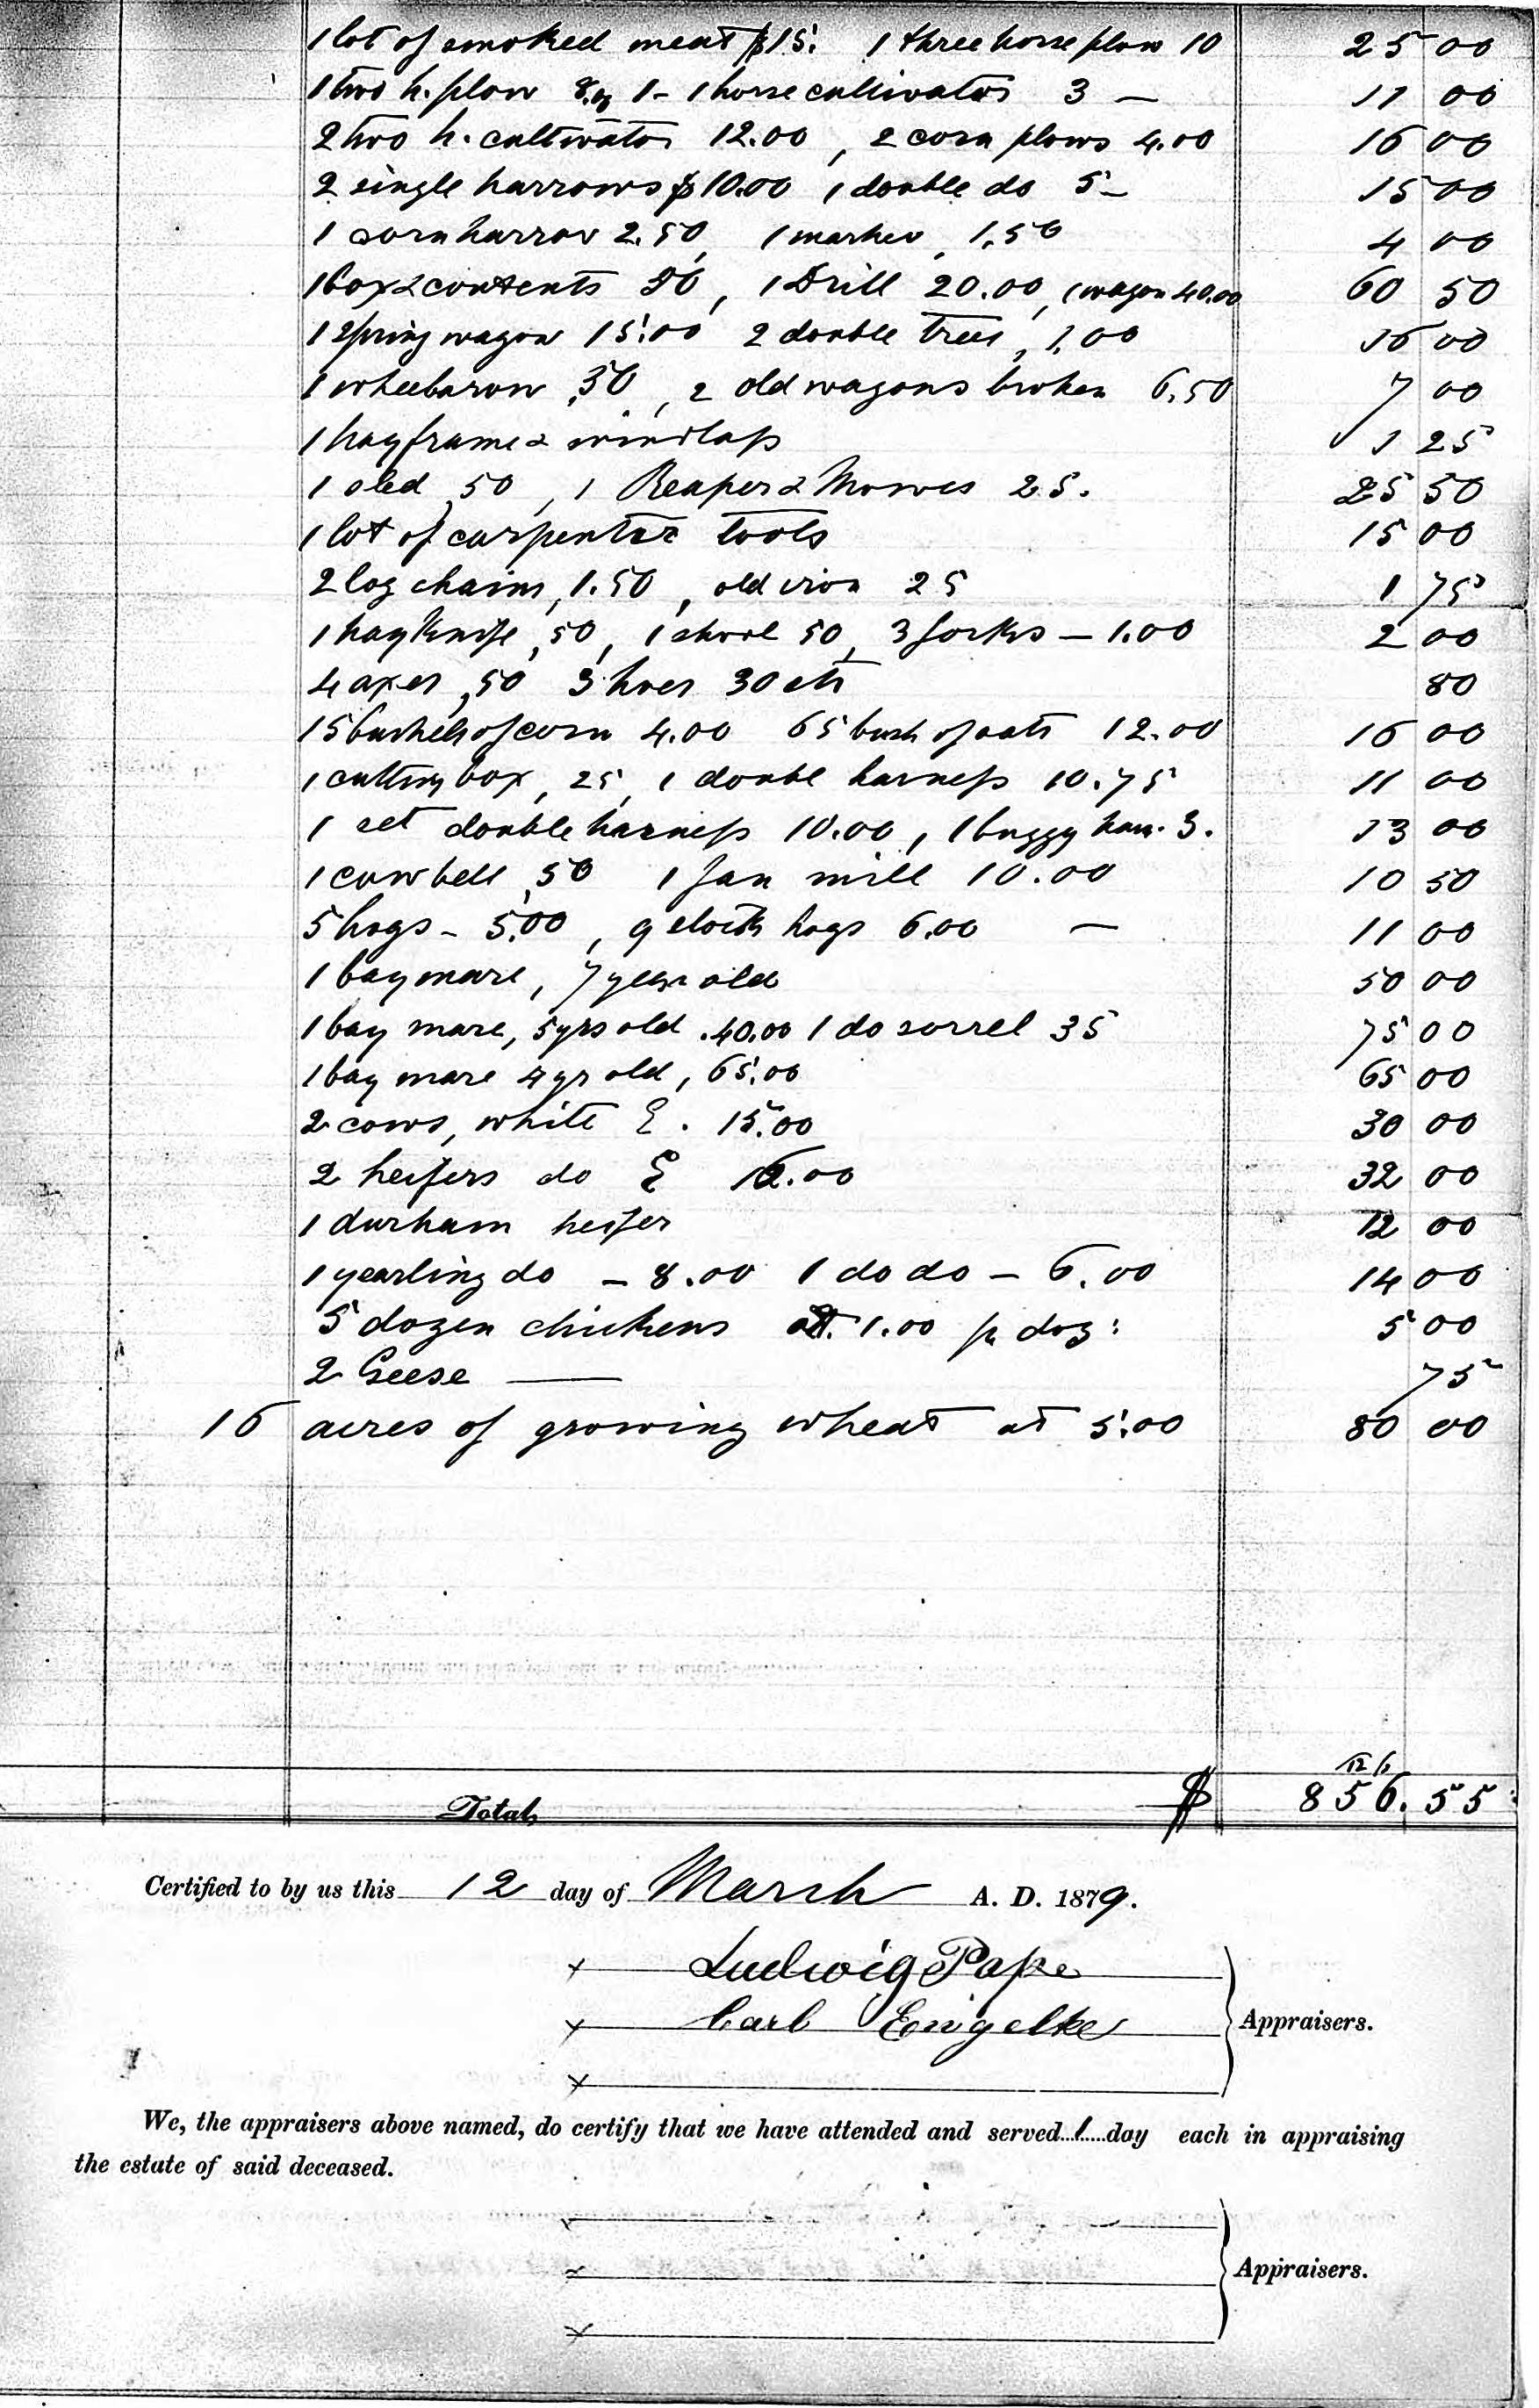 1 lot of smoked meat $15. 1 three horse plow 10 25 00
1 two h. plow 8. 1 – 1 horse cultivator 3 — 11 00
2 two h. cultivator 12.00, 2 corn plows 4.00 16 00
2 single harrows $10.00 1 double do 5– 15 00
1 corn harrow 2.50, 1 marker, 1.50 4 00
1 box & contents 50, 1 Drill 20.00, 1 wagon 40.00 60 50
1 spring wagon 15.00 2 double trees, 1.00 16 00
1 wheebarow .50, 2 old wagons broken 6.50 7 00
1 hay frame & windlass 1 25
1 sled 50, 1 Reaper & Mower 25. 25 50
1 lot of carpenter tools 15 00
2 log chains, 1.50, old iron 25 1 75
1 hay Knife, 50, 1 shovl 50, 3 forks – 1.00 2 00
4 axes, 50 3 hoes 30 cts 80
15 bushels of corn 4.00 65 bush of oats 12.00 16 00
1 cutting box, 25, 1 doubl harness 10.75 11 00
1 set double harness 10.00, 1 buggy harn. 3. 13 00
1 cowbell 50 1 fan mill 10.00 10 50
5 hogs – 5.00, 9 stock hogs 6.00 — 11 00
1 bay mare, 7 year old 50 00
1 bay mare, 5 yrs old .40.00 1 do sorrel 35 75 00
1 bay mare 4 yr old, 65.00 65 00
2 cows, white . 15.00 30 00
2 heifers do 16.00 32 00
1 durham heifer 12 00
1 yearling do – 8.00 1 do do – 6.00 14 00
5 dozen chickens at. 1.00 p doz: 5 00
2 Geese — 75
16 acres of growing wheat at 5.00 80 00
Total, $ 856.55
Certified to by us this 12 day of March A. D. 1879.
Ludwig Pape
Carl Engelke
Appraisers.
We, the appraisers above named, do certify that we have attended and served 1 day each in appraising
the estate of said deceased.
Appraisers.